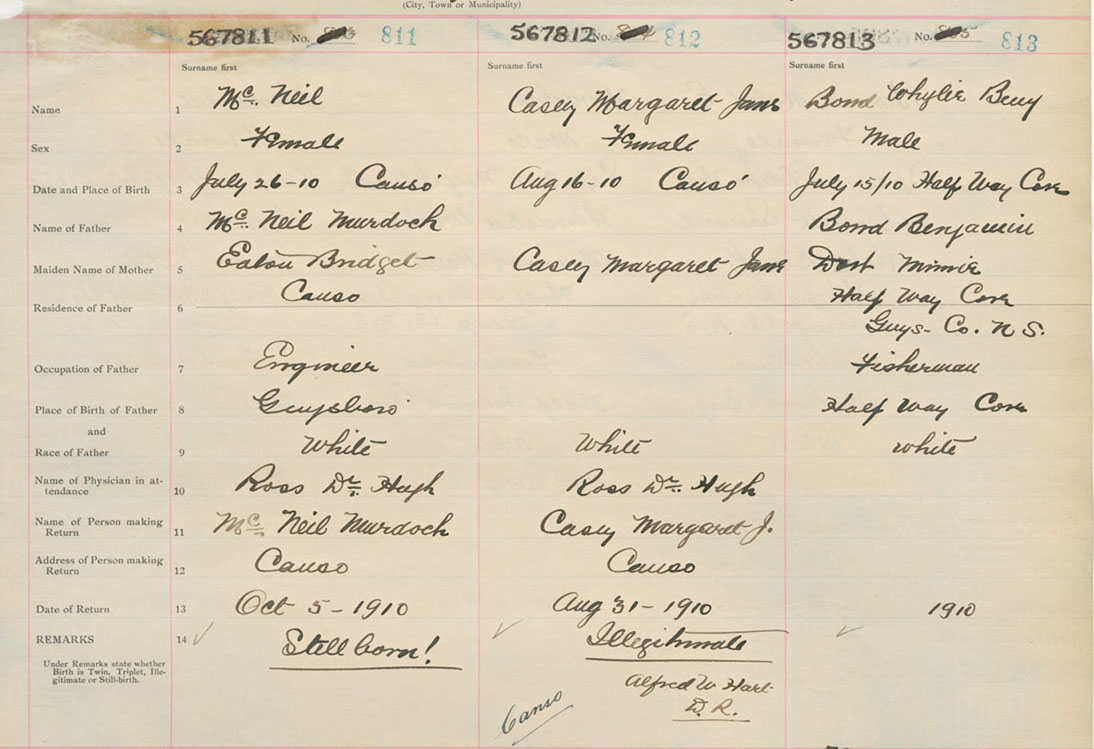 (City, Town or Municipality)
567811 No. 811 567812 No. 812 567813 No. 813
Surname first Surname first Surname first
Name 1 Mc. Neil Casey Margaret Jane Bond Whylie Bury
Sex 2 Female Female Male
Date and Place of Birth 3 July 26-10 Canso Aug 16-10 Canso July 15/10 Half Way Cove
Name of Father 4 Mc. Neil Murdock Bond Benjamin
Maiden Name of Mother 5 Eaton Bridget Casey Margaret Jane Dort Minnie
Residence of Father 6 Canso Half Way Cove
Guys- Co. N S.
Occupation of Father 7 Engineer Fisherman
Place of Birth of Father 8 Guysboro Half Way Cove
and
Race of Father 9 White White White
Name of Physician in at-
tendance 10 Ross Dr. Hugh Ross Dr. Hugh
Name of Person making
Return 11 Mc. Neil Murdock Casey Margaret J.
Address of Person making
Return 12 Canso Canso
Date of Return 13 Oct 5-1910 Aug 31-1910 1910
REMARKS 14 Still born! Illegitimate
Under Remarks state whether
Birth is Twin, Triplet, Ille-
gitimate or Still-birth.
Alfred W Hart
D. R.
Canso